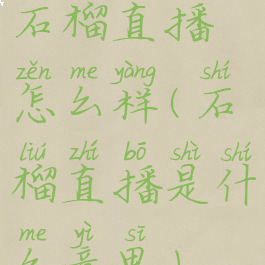 石榴直播
zěn me yàng shí
怎么样(石
liú zhí bō shì shí
榴直播是什
me yì sī
么意思)